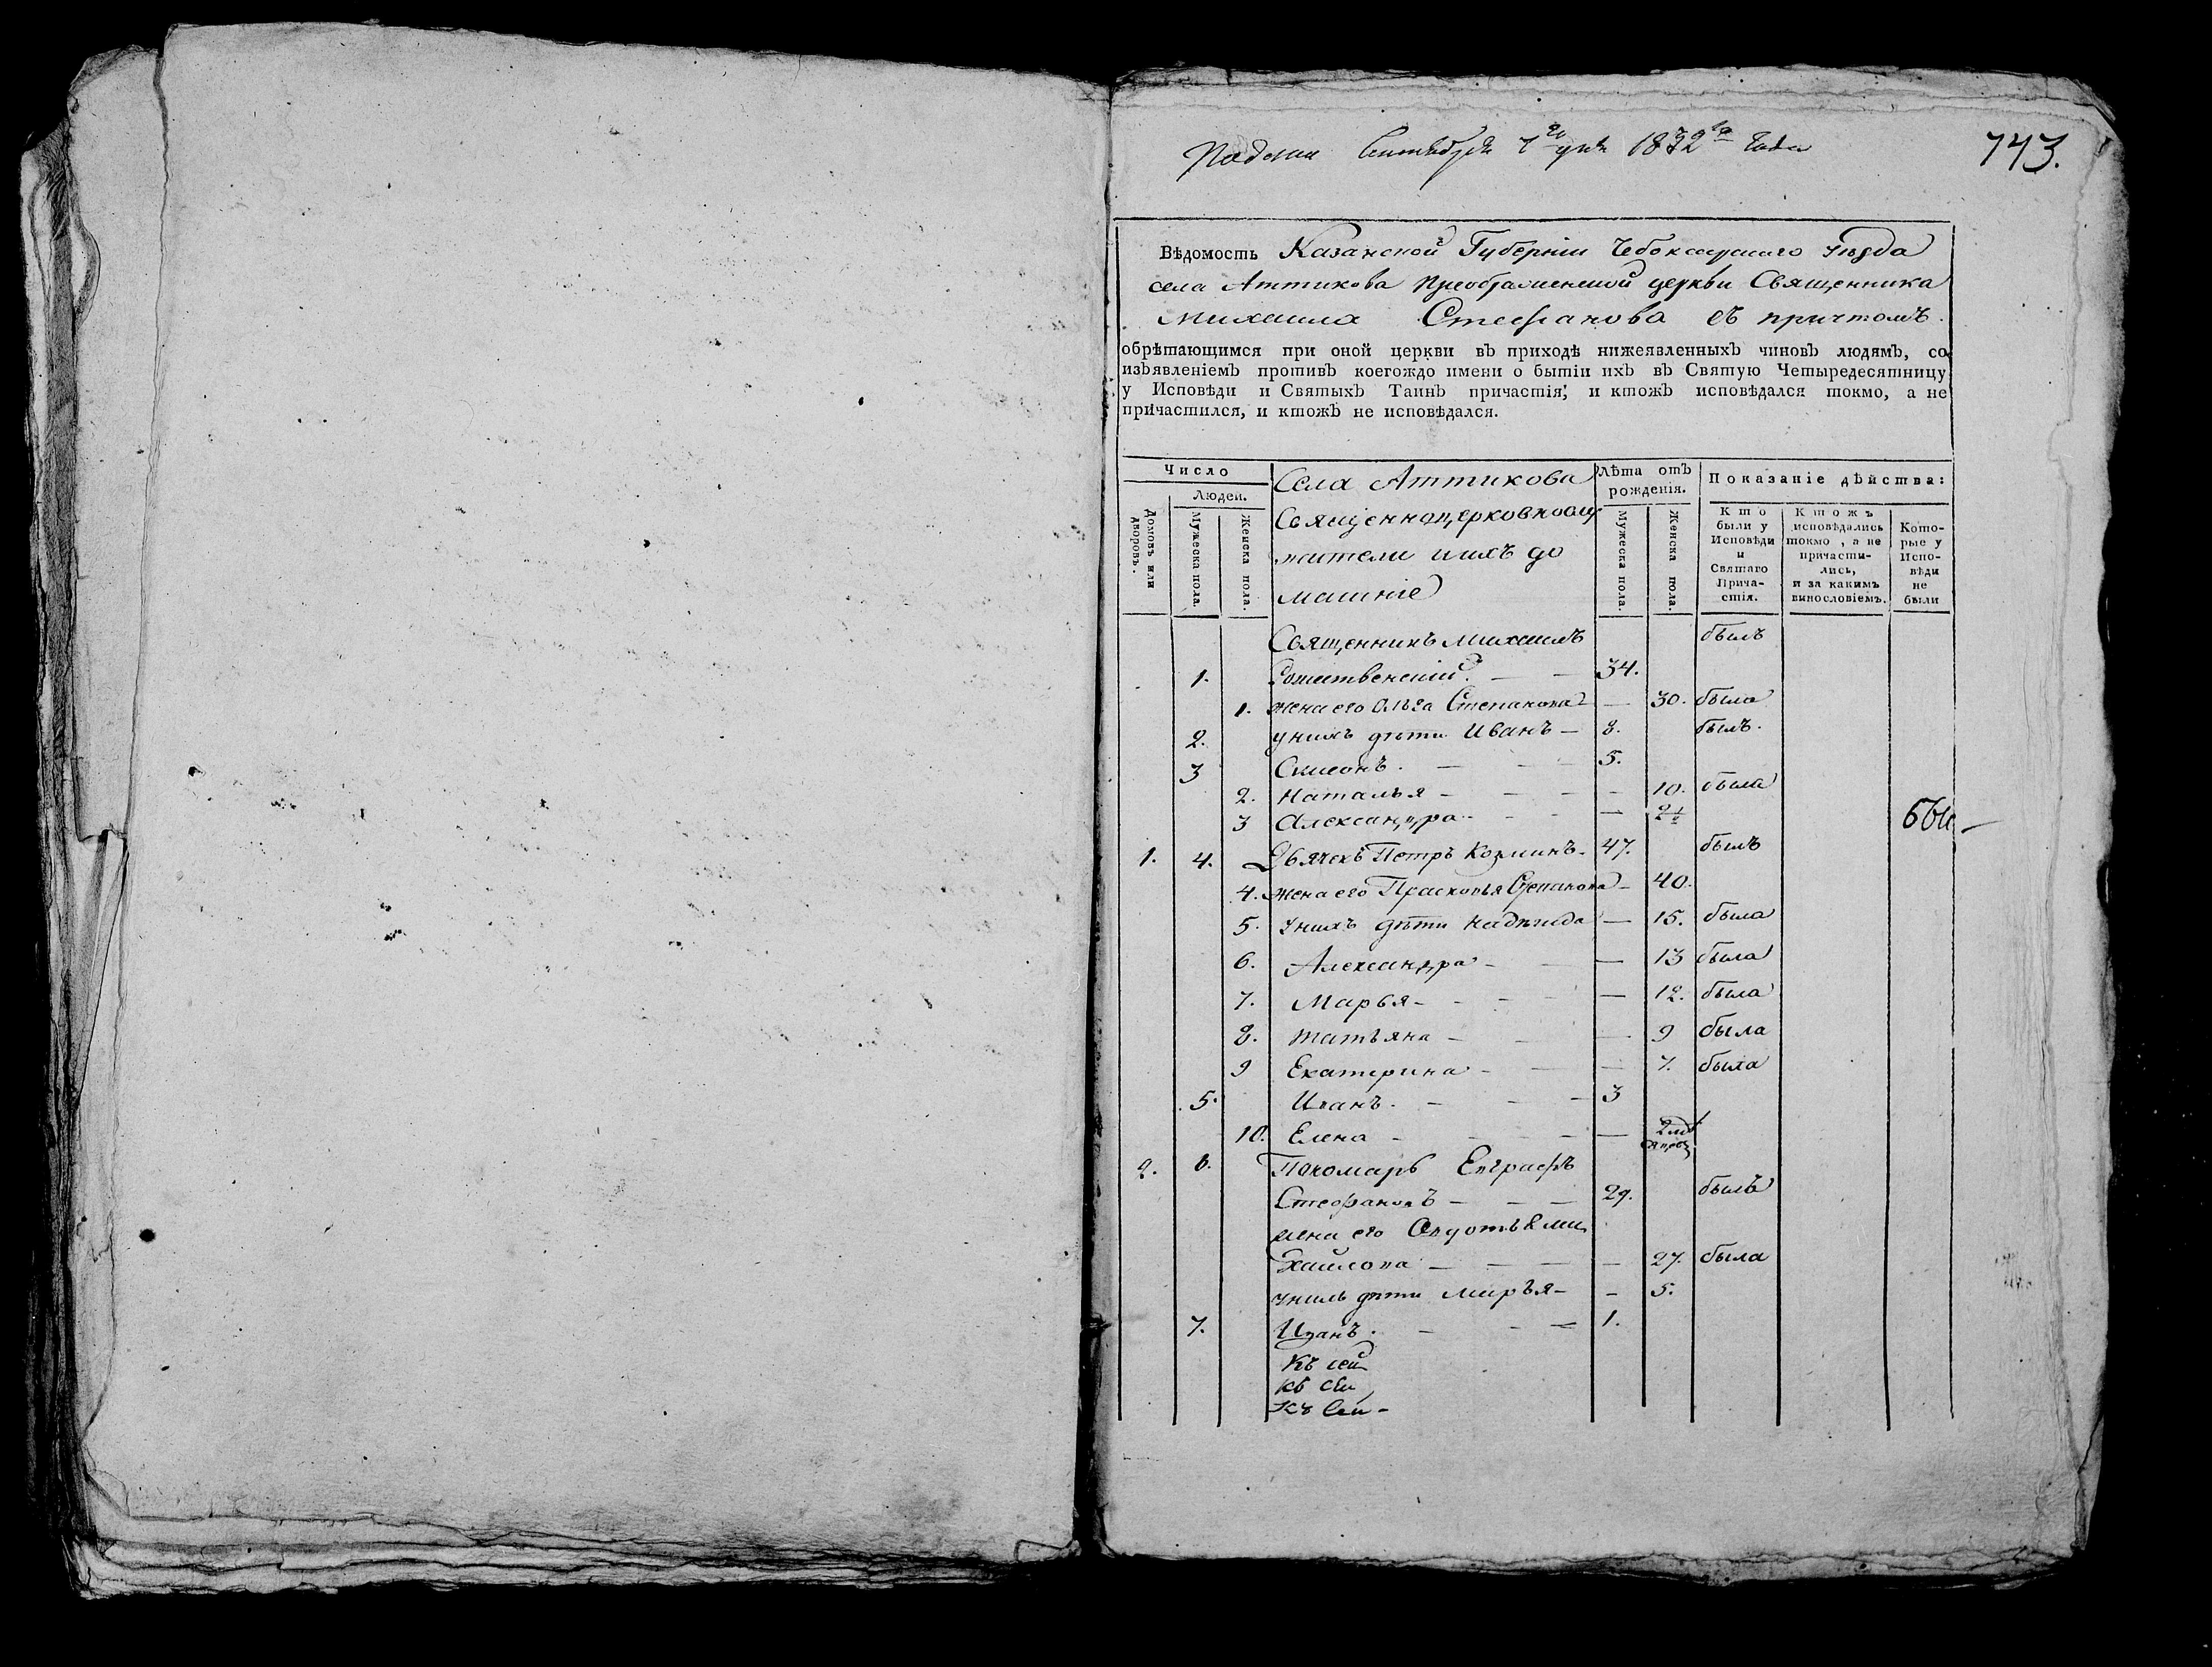 Подана Сентября 7го дня 1832го Года
743.
Вѣдомость Казанской Губерніи Чебоксарскаго Уѣзда
села Аттикова Преображенской церкви Священника
Михаила Стефанова съ причтомъ
обрѣтающимся при оной церкви въ приходѣ нижеявленныхъ чиновъ людямъ, со
изъявленіемъ противъ коегождо имени о бытіи ихъ въ Святую Четыредесятницу
у Исповѣди и Святыхъ Таинъ причастія, и ктожъ исповѣдался токмо, а не
причастился, и ктожъ не исповѣдался.
Число
Людей.
Домовъ или дворовъ.
Мужеска пола.
Женска пола.
Села Аттикова
Священноцерковнослу
жители и ихъ до
машніе
Лѣта отъ рожденія.
Мужеска пола.
Женска пола.
Показаніе дѣйства:
Кто были у Исповѣди и Святаго Причастія.
Ктожъ исповѣдались токмо, а не причастились, и за какимъ винословіемъ.
Которые у Исповѣди не были
Священникъ Михаилъ былъ
1. Рожественскій. — — 34.
1. жена его Ольга Степанова — 30. была
2. у нихъ дѣти Иванъ — 8. былъ.
3 Симеонъ. — — 5.
2. Наталья — — — 10. была
3 Александра — — 2½
1. 4. Дьячекъ Петръ Козминъ. 47. былъ
4. жена его Прасковья Степанова — 40.
5. У нихъ дѣти Надежда — 15. была
6. Александра — — — 13 была
7. Марья — — — 12. была
8. Татьяна — — — 9 была
9 Екатерина — — — 7. была
5. Иванъ. — — 3
10. Елена — — —
2. 6. Пономарь Евграфъ
Стефановъ — — — 29. былъ
жена его Авдотья Ми
хайлова — — — 27. была
у нихъ дѣти Марья — — 5.
7. Иванъ. — — 1.
Къ сей
Къ сей
Къ сей —